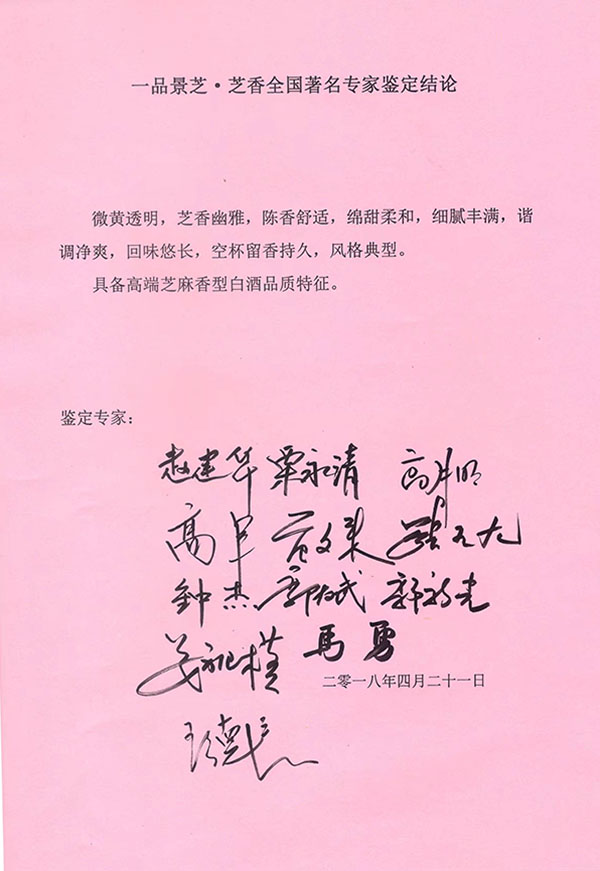 一品景芝·芝香全国著名专家鉴定结论
微黄透明，芝香幽雅，陈香舒适，绵甜柔和，细腻丰满，谐
调净爽，回味悠长，空杯留香持久，风格典型。
具备高端芝麻香型白酒品质特征。
鉴定专家：
赵建华 栗永清 高月明
高军
钟杰
马勇
二零一八年四月二十一日